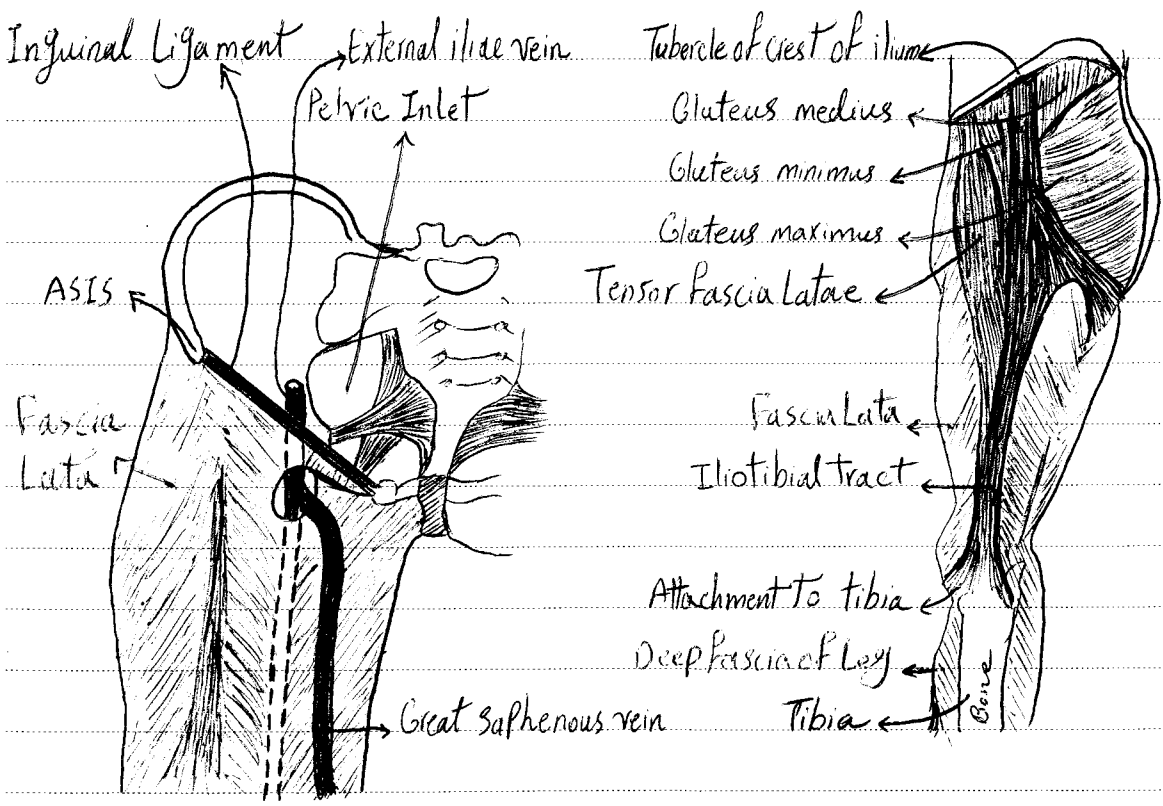 Inguinal Ligament
External iliac vein
Pelvic Inlet
ASIS
Fascia
Lata
Great saphenous vein
Tubercle of crest of ilium
Gluteus medius
Gluteus minimus
Gluteus maximus
Tensor fascia Latae
Fascia Lata
Iliotibial tract
Attachment To tibia
Deep fascia of Leg
Tibia
Bone